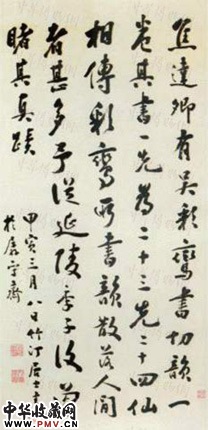 焦達卿有吴彩鸞書切韻一
卷其書一先為二十三先二十四仙
相傳彩鸞所書韻散落人間
者甚多予從延陵季子後為
睹其真蹟
甲寅三月八日竹汀居士書
於孱守齋
中华收藏网
www.PMV.CN